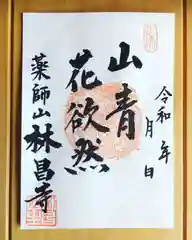 令和 年 月 日
山青
花欲然
薬師山 林昌寺